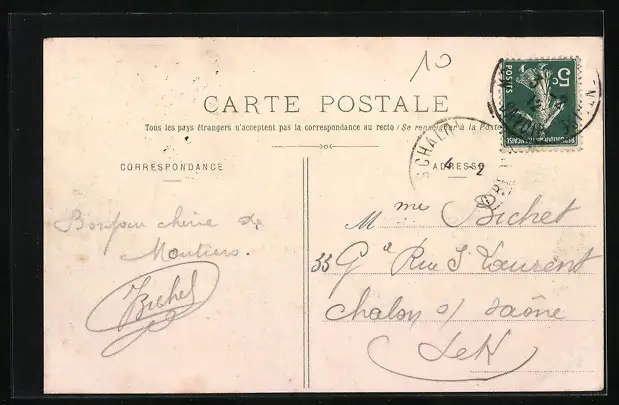 10
CARTE POSTALE
Tous les pays étrangers n'acceptent pas la correspondance au recto (Se renseigner à la Poste
CORRESPONDANCE
ADRESSE
5c
POSTES
REPUBLIQUE FRANÇAISE
CHALON
4 2
Bonjour chérie de
Moutiers.
Bichet
Mme Bichet
33 Gde Rue St Laurent
Chalon s/ Saône